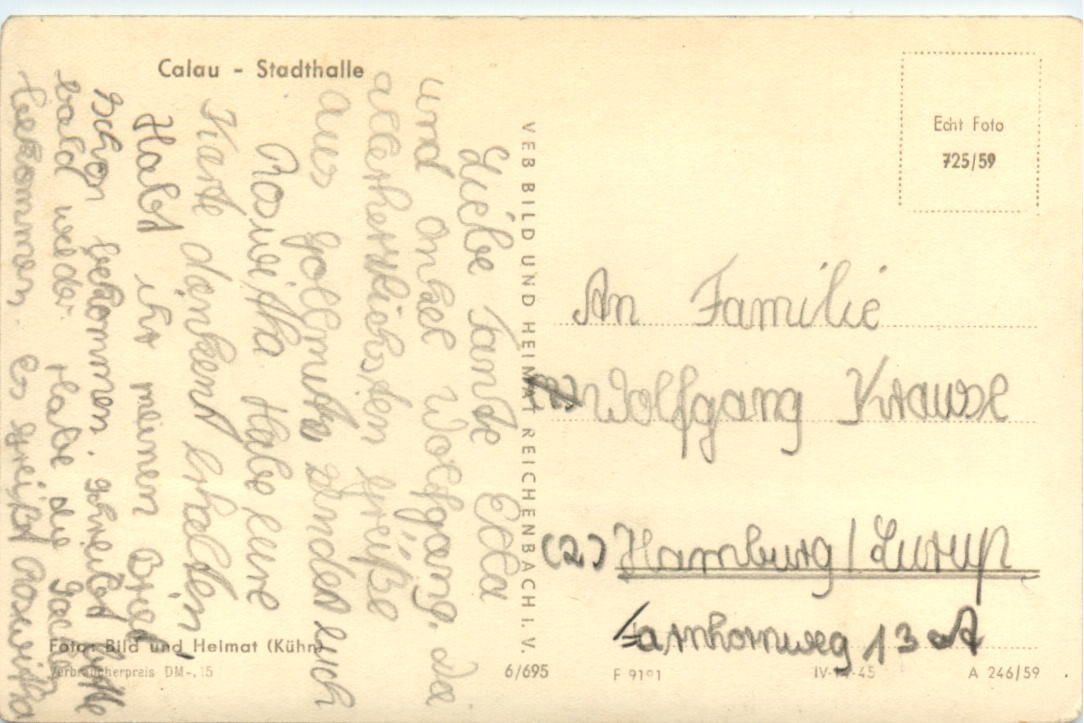 Calau - Stadthalle
Liebe Tante Ella
und Onkel Wolfgang. Die
allerherzlichsten Grüße
aus Gollmitz sendet euch
Roswitha Habe eure
Karte dankend erhalten
Habt ihr meinen Brief
schon bekommen. schreibt bitte
bald wieder. Habe die
bekommen. Es grüßt Roswitha
Foto: Bild und Heimat (Kühn)
Verbraucherpreis DM -,15
VEB BILD UND HEIMAT REICHENBACH I. V.
6/695
Echt Foto
725/59
An Familie
Wolfgang Krause
(2) Hamburg/Lurup
Farnhornweg 13 A
F 9191
IV-14-45
A 246/59